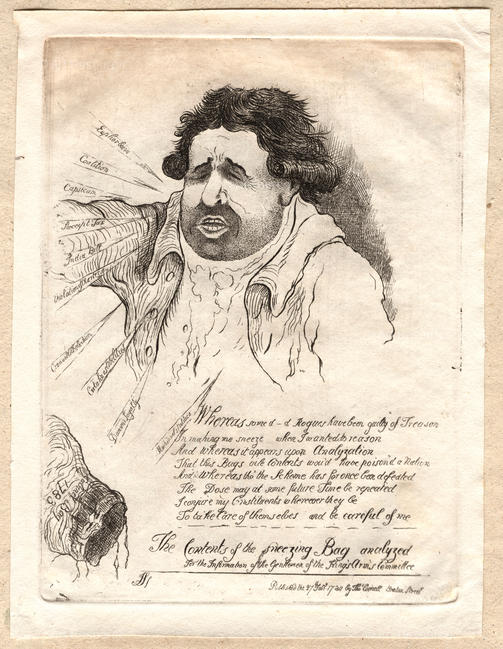 Euphorbium
Coalition
Capsicum
Receipt Tax
India Bill
Whereas some d–d Rogues have been guilty of Treason
In making me sneeze when I wanted to reason
And whereas it appears upon Analyzation
That this Bags vile Contents wou'd have poison'd a Nation
And Whereas tho' the Scheme has for once been defeated
The Dose may at some future Time be repeated
I conjure my Constituents wherever they be
To take Care of themselves and be careful of me
The Contents of the sneezing Bag analyzed
for the Information of the Gentlemen of the King's Arms Committee
Publish'd the 27 Feb. 17 by Thos Cornell Bruton Street